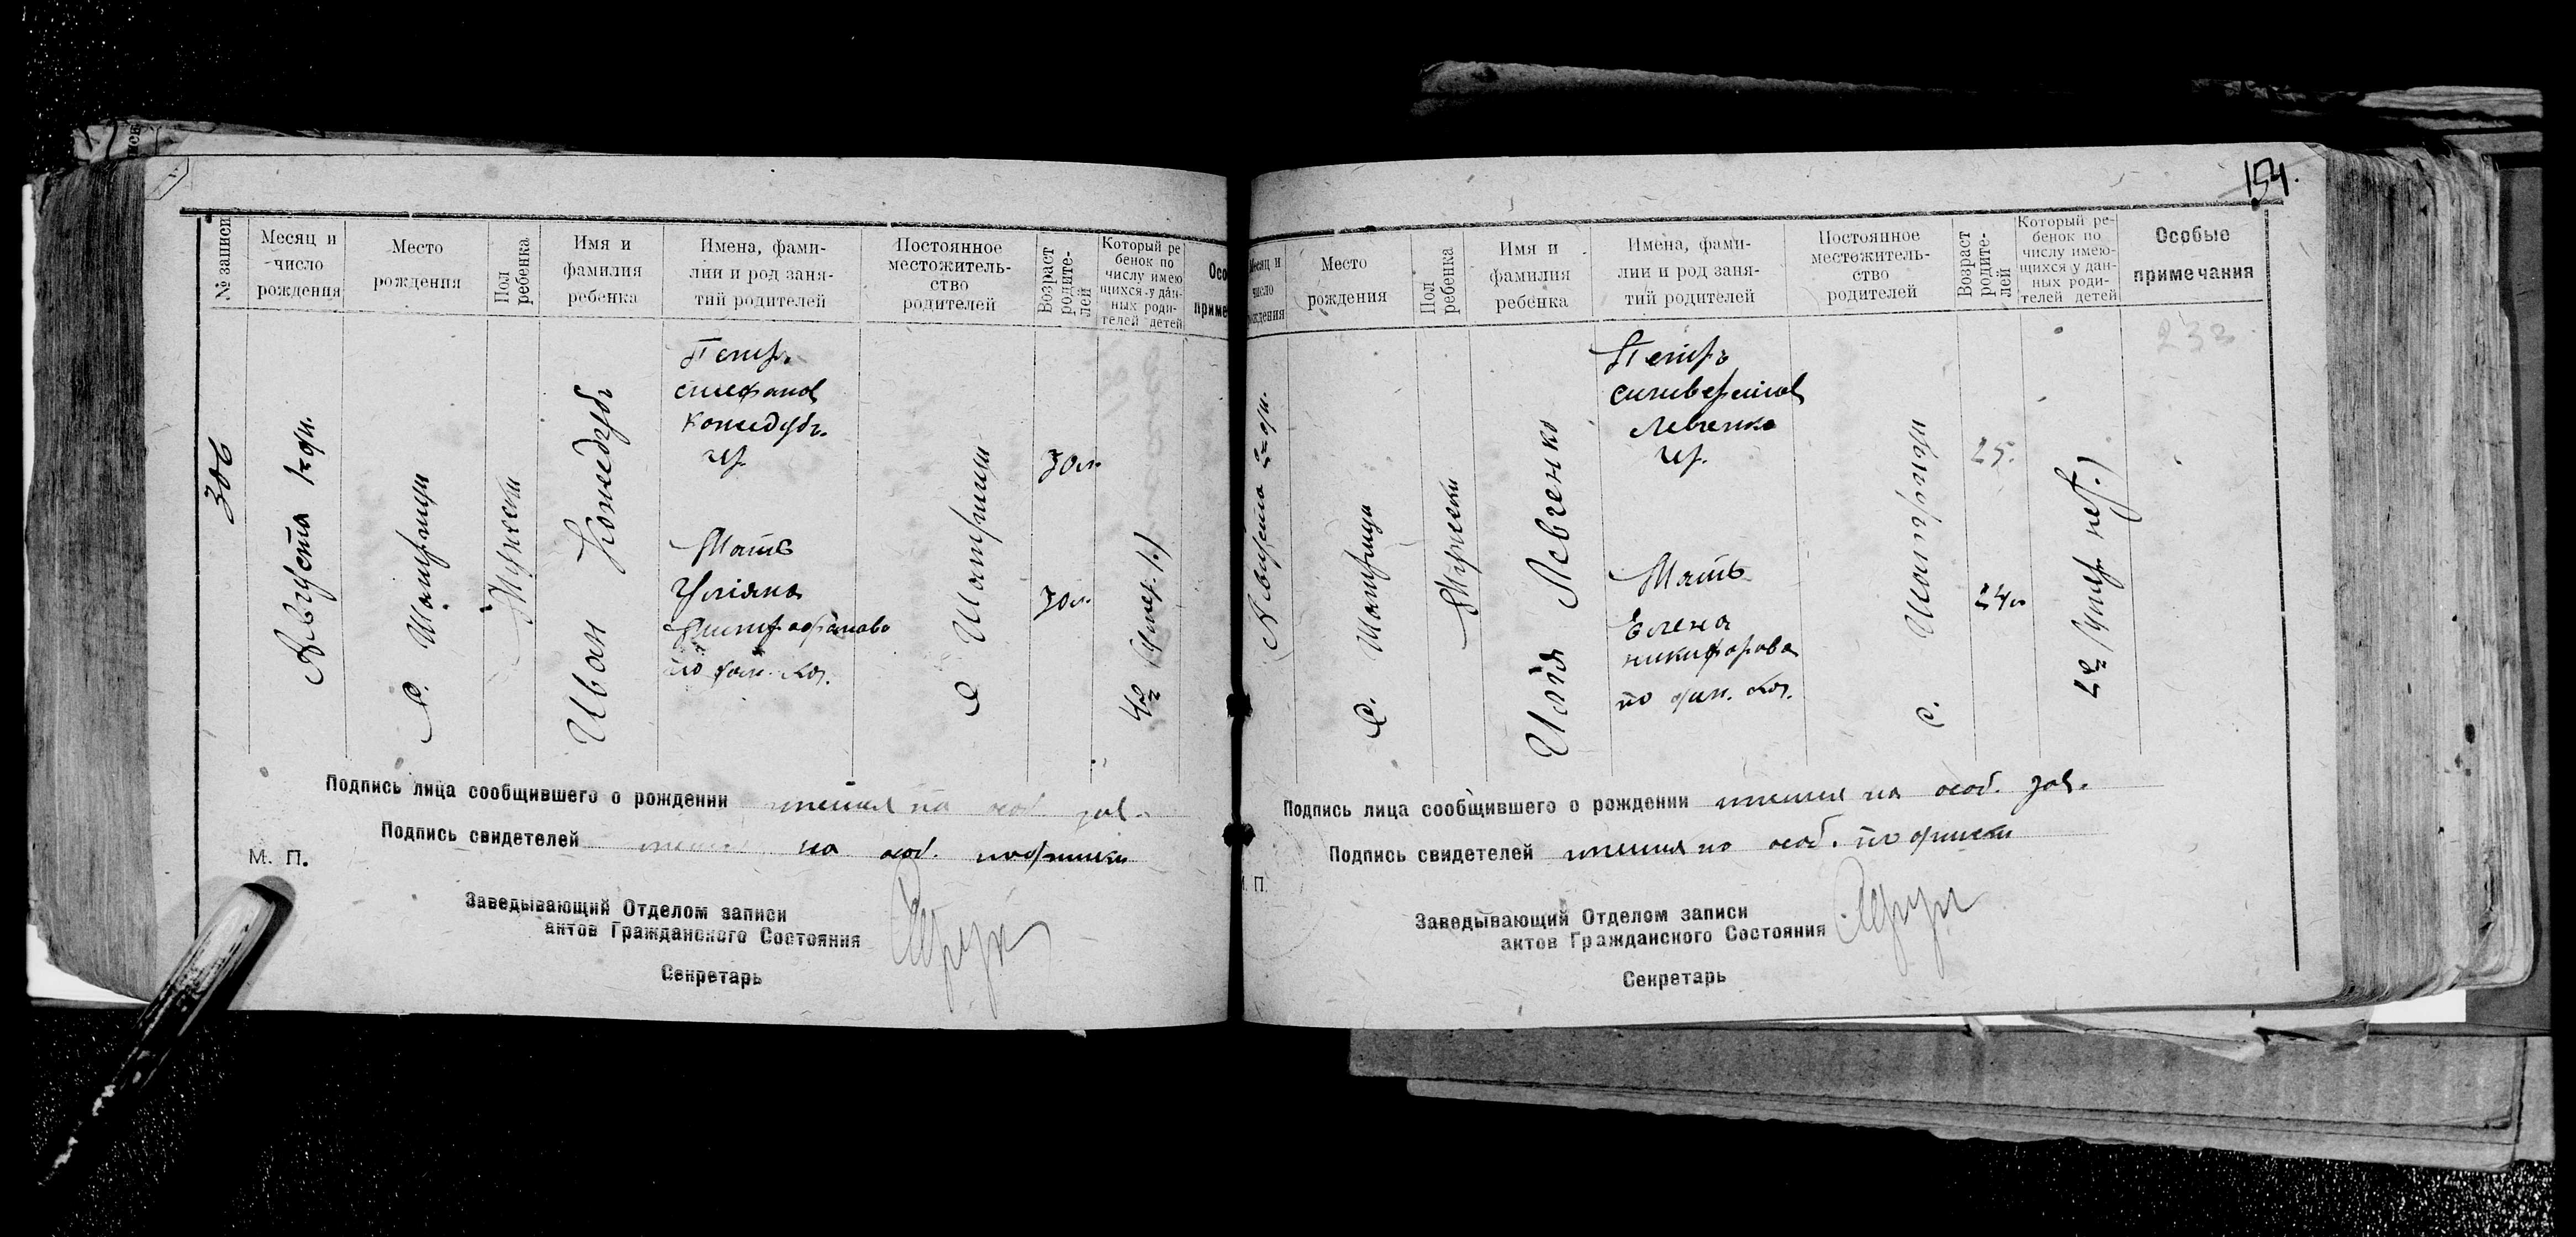 154.
№ записи
Месяц и
число
рождения
Место
рождения
Пол
ребенка
Имя и
фамилия
ребенка
Имена, фами-
лии и род заня-
тий родителей
Постоянное
местожитель-
ство
родителей
Возраст
родите-
лей
Который ре
бенок по
числу имею
щихся у дан-
ных роди-
телей детей
Осо
приме
306
Августа 1го дн.
с. Шатрищи
Мужески
Иван Кожедубъ
Петръ
Стефанов
Кожедубъ.
Мать
Улiяна
Митрофанова
по фам.
с Шатрищи
30 л.
30 л.
4й
Подпись лица сообщившего о рождении имеися на особ. зая.
Подпись свидетелей на особ. подписки
М. П.
Заведывающий Отделом записи
актов Гражданского Состояния
Секретарь
Месяц и
число
рождения
Место
рождения
Пол
ребенка
Имя и
фамилия
ребенка
Имена, фами-
лии и род заня-
тий родителей
Постоянное
местожитель-
ство
родителей
Возраст
родите-
лей
Который ре-
бенок по
числу имею-
щихся у дан-
ных роди-
телей детей
Особые
примечания
Августа 2го дн.
с. Шатрищи
Мужески
Илья Левченко
Петръ
Силиверстов
Левченко
Мать
Елена
Никифорова
по фам.
с. Шатрищи
25.
24 л
2й
Подпись лица сообщившего о рождении имеися на особ. зая.
Подпись свидетелей имеися на особ. подписки
М. П.
Заведывающий Отделом записи
актов Гражданского Состояния
Секретарь